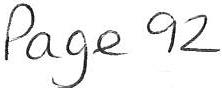 Page 92